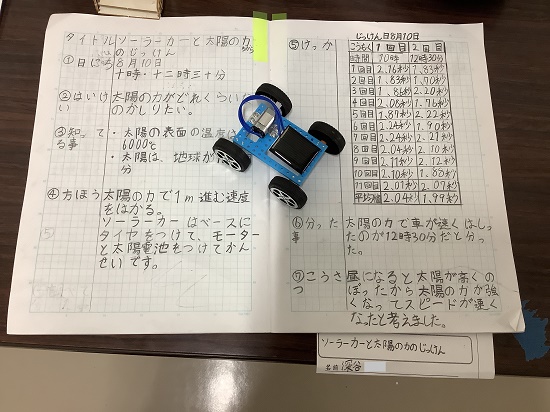 タイトル ソーラーカーと太陽の力
のじっけん
①日にち 8月10日
十時・十二時三十分
②はいけ 太陽の力がどれくらい
のかしりたい。
③知って ・太陽の表面の温度は
る事 6000℃
・太陽は、地球が
分
④方ほう 太陽の力で1m進む速度
をはかる。
ソーラーカーはベースに
タイヤをつけて、モーター
と太陽電池をつけてかん
せいです。
⑤けっか
じっけん日8月10日
こうもく 1回目 2回目
時間 10時 12時30分
1回目 2.16秒 1.83秒
2回目
3回目 1.86秒 2.20秒
4回目 2.08秒 1.76秒
5回目 1.87秒 2.22秒
6回目 2.24秒 1.90秒
7回目
8回目 2.04秒 2.10秒
9回目 2.11秒
10回目 2.10秒 1.88秒
11回目 2.01秒 2.07秒
平均値 2.04秒 1.99秒
⑥分った 太陽の力で車が速くはしっ
事 たのが12時30分だと分っ
た。
⑦こうさ 昼になると太陽が高くの
つ ぼったから太陽の力が強
くなってスピードが速く
なったと考えました。
ソーラーカーと太陽の力のじっけん
名前 深谷